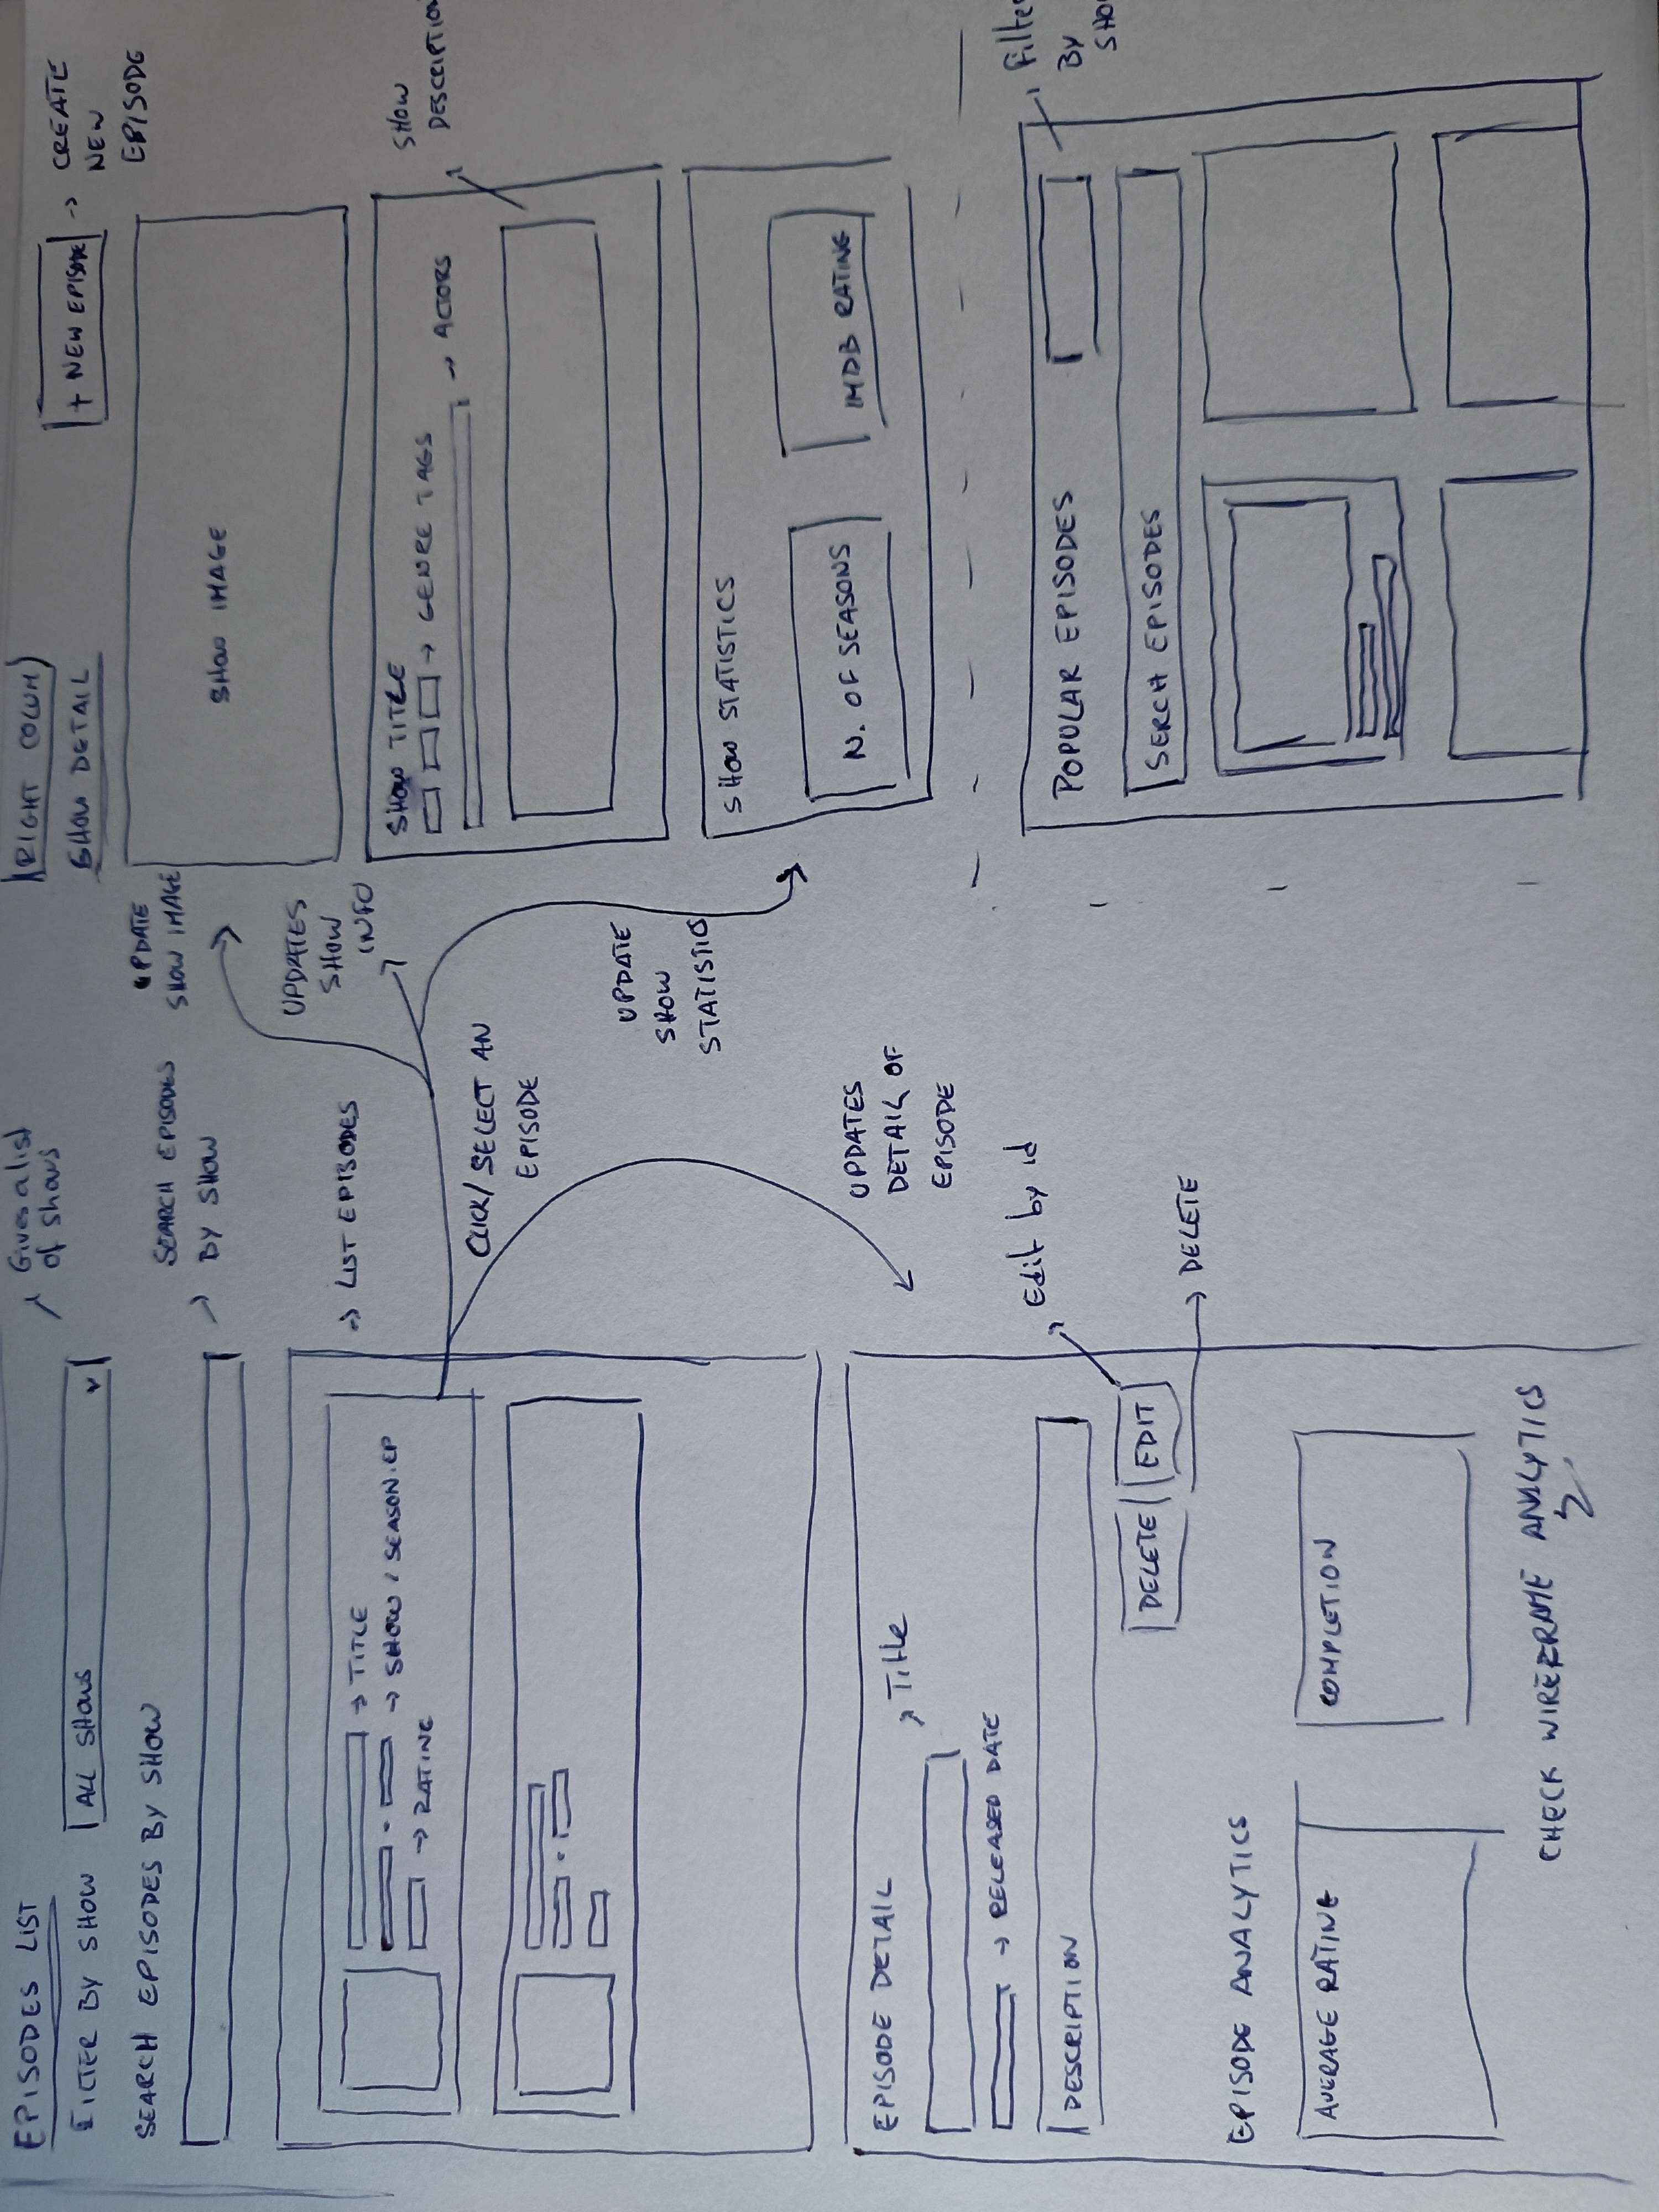 EPISODES LIST
FILTER BY SHOW
ALL SHOWS
Gives a list
of shows
SEARCH EPISODES BY SHOW
SEARCH EPISODES
BY SHOW
→ LIST EPISODES
→ TITLE
→ SHOW / SEASON.EP
→ RATING
CLICK/SELECT AN
EPISODE
UPDATE
SHOW IMAGE
UPDATES
SHOW
INFO
UPDATE
SHOW
STATISTIC
UPDATES
DETAIL OF
EPISODE
EPISODE DETAIL
Title
→ RELEASED DATE
DESCRIPTION
DELETE
EDIT
Edit by id
→ DELETE
EPISODE ANALYTICS
AVERAGE RATING
COMPLETION
CHECK WIREFRAME ANALYTICS
RIGHT COLUM
SHOW DETAIL
+ NEW EPISODE
→ CREATE
NEW
EPISODE
SHOW IMAGE
SHOW TITLE
→ GENRE TAGS
→ ACTORS
SHOW
DESCRIPTION
SHOW STATISTICS
N. OF SEASONS
IMDB RATING
POPULAR EPISODES
Filte
BY
SHO
SERCH EPISODES